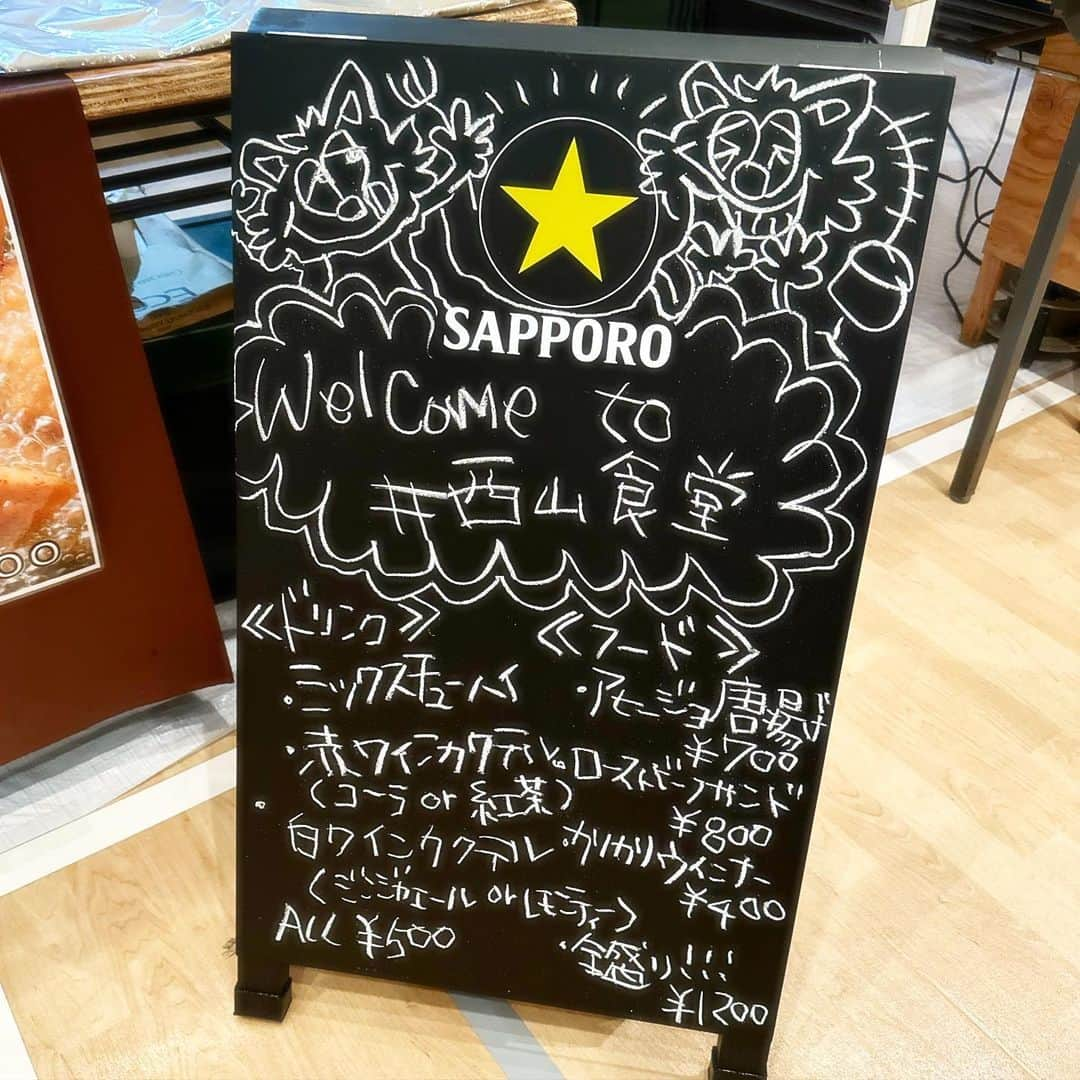 SAPPORO
Welcome to
#西山食堂
≪ドリンク≫
・ミックスチューハイ
・赤ワインカクテル
(コーラ or 紅茶)
・白ワインカクテル
(ジンジャエール or レモンティー)
All ¥500
≪フード≫
・アヒージョ唐揚げ
¥700
・ローストビーフサンド
¥800
・カリカリウインナー
¥400
・全盛り!!!
¥1200